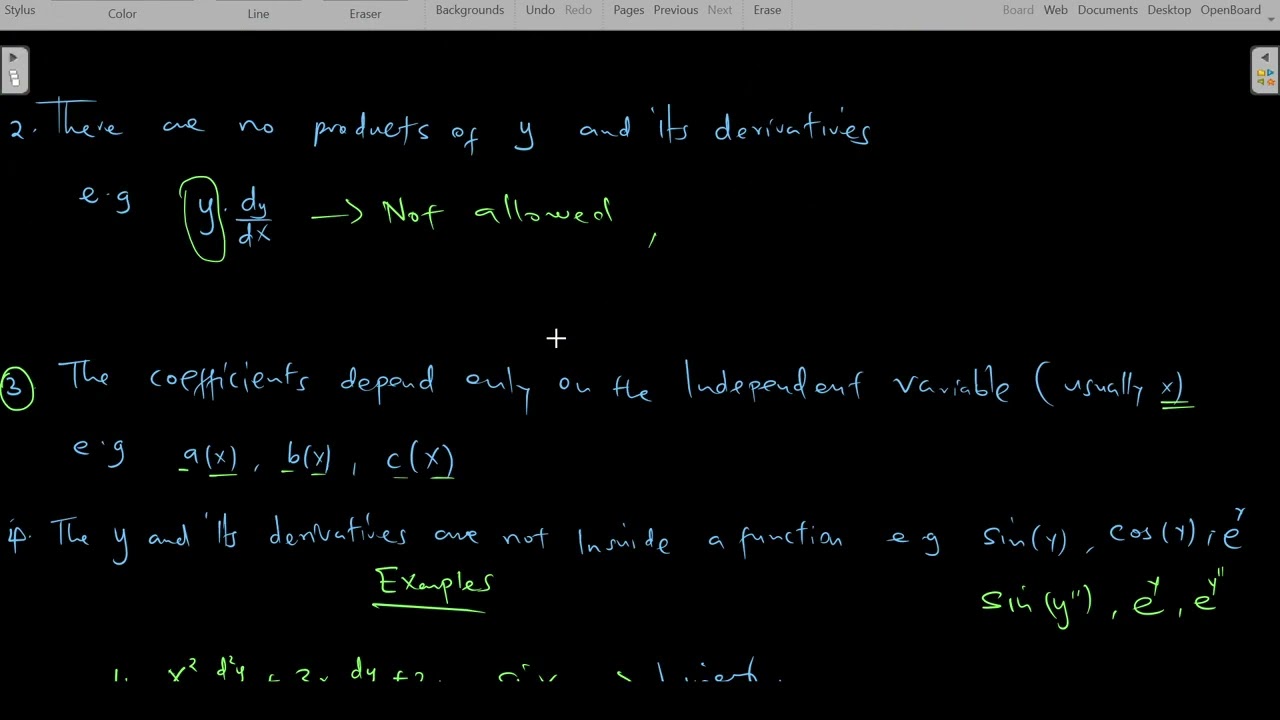 Stylus Color Line Eraser Backgrounds Undo Redo Pages Previous Next Erase Board Web Documents Desktop OpenBoard
2. There are no products of y and its derivatives
e.g y · dy/dx → Not allowed ,
3 The coefficients depend only on the Independent variable (usually x)
e.g a(x), b(x), c(x)
4. The y and its derivatives are not Inside a function e.g sin(y), cos(y), e^y
Examples
sin(y''), e^y, e^y''
1. x² d²y